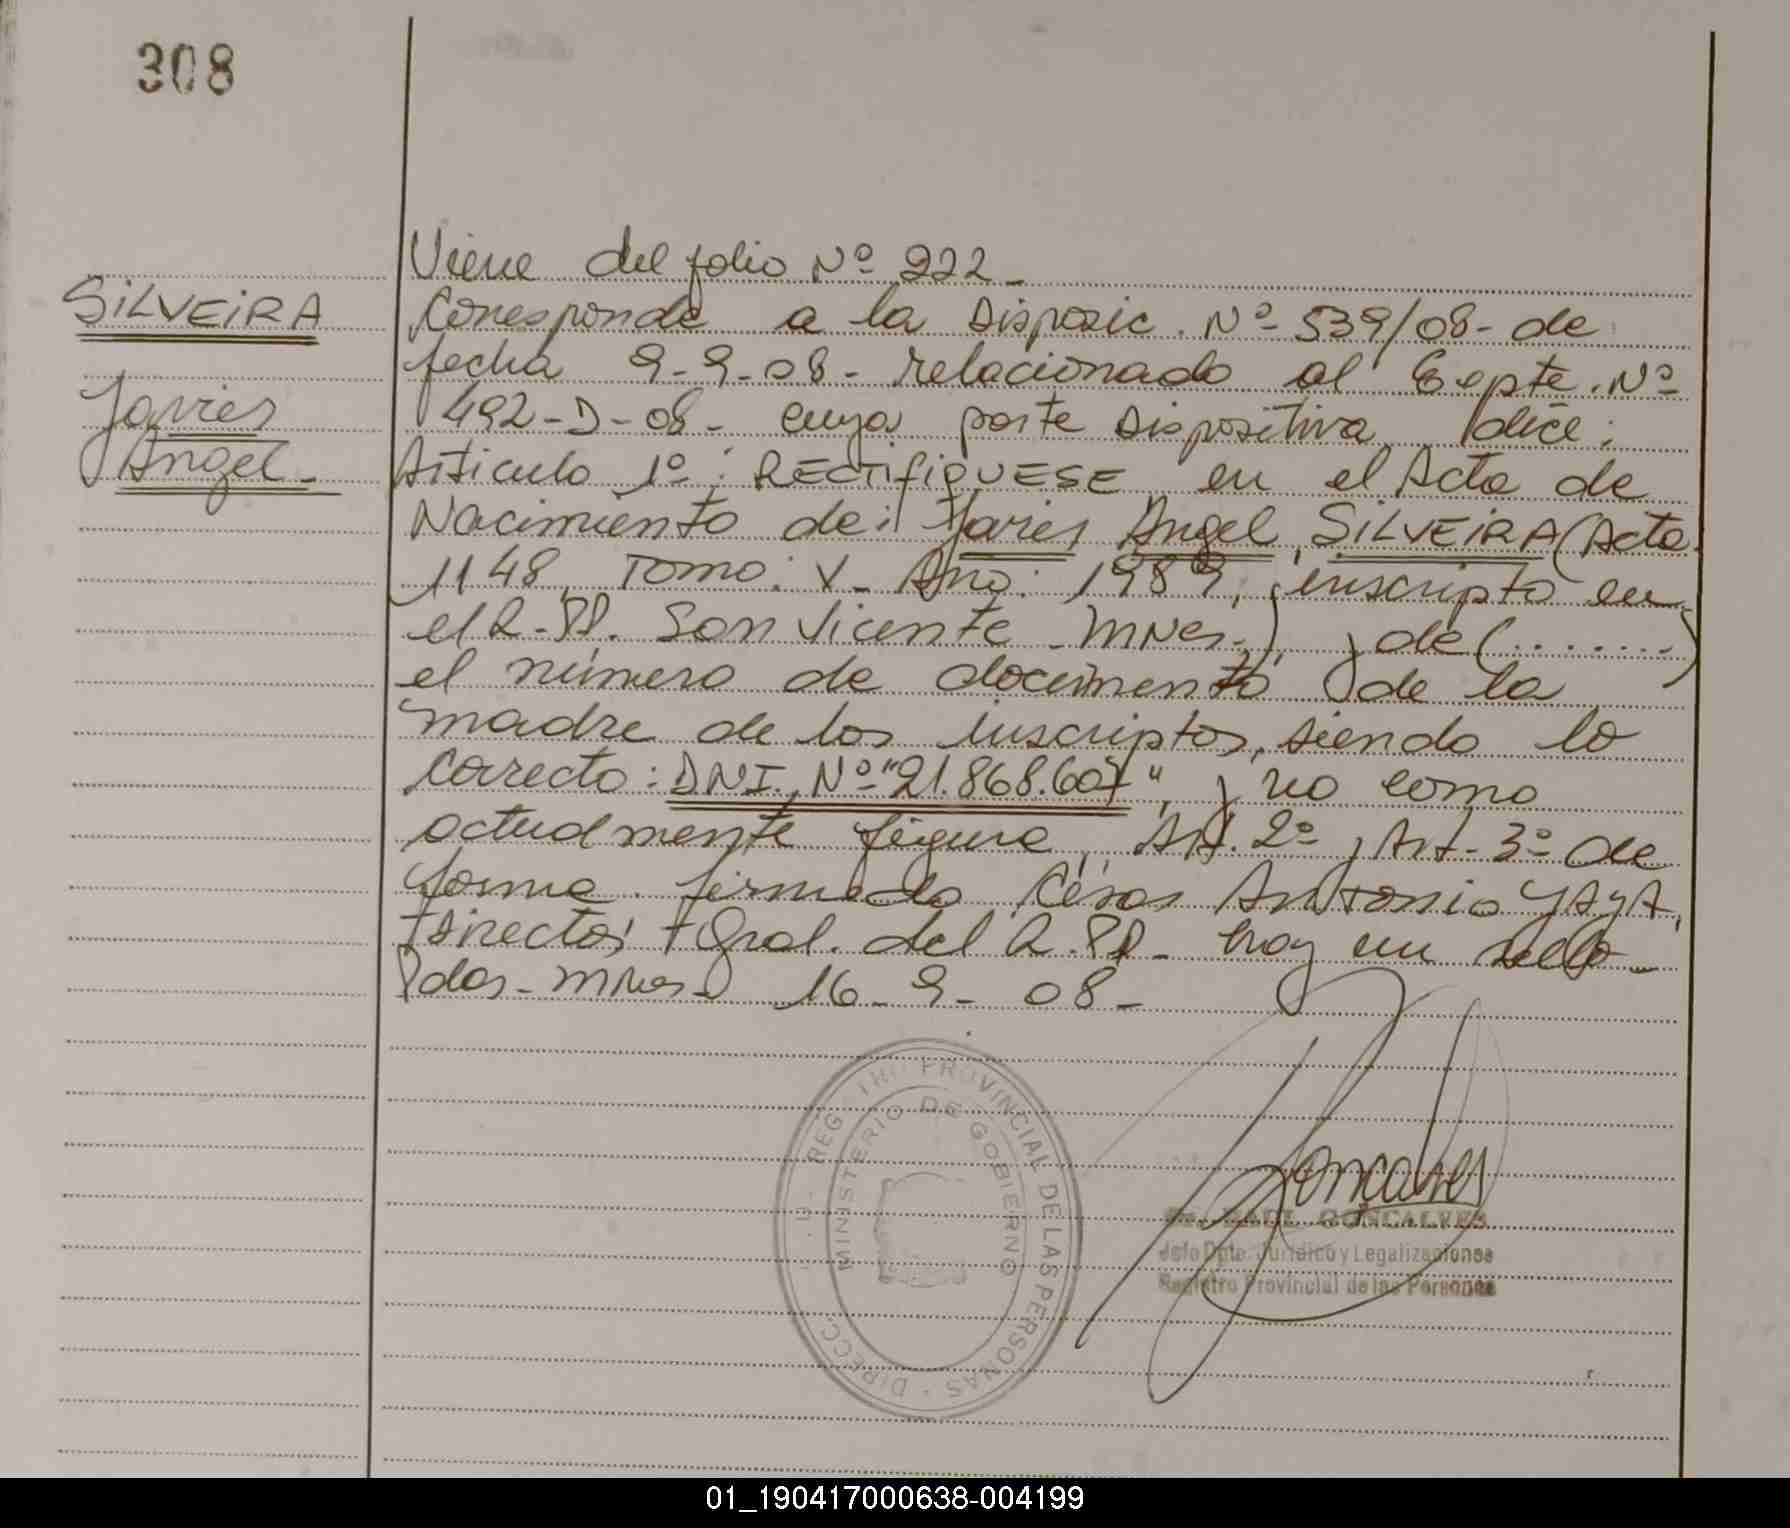 308
Viene del folio Nº 222_
SiLVEiRA
Corresponde a la Disposic. Nº 539/08- de
fecha 9-9-08- relacionado al Expte. Nº
Javier
492-D-08- cuya parte Dispositiva dice:
Angel_
Articulo 1º: RECTIFIQUESE en el Acta de
Nacimiento de: Javier Angel SILVEIRA (Acta
1148, Tomo: V- Año: 1989, inscripto en
el R.PP. San Vicente - Mnes.) y de (........)
el número de documento de la
madre de los inscriptos, siendo lo
correcto: DNI. Nº "21.868.607", y no como
actualmente figura, Art. 2º y Art. 3º de
forma. firmado César Antonio YAYA,
Director Gral. del R.PP- hay un sello_
Pdas- Mnes- 16-9-08-
DIRECC. REGISTRO PROVINCIAL DE LAS PERSONAS
MINISTERIO DE GOBIERNO
Goncalves
RAUL GONCALVES
Jefe Dpto. Jurídico y Legalizaciones
Registro Provincial de las Personas
01_190417000638-004199